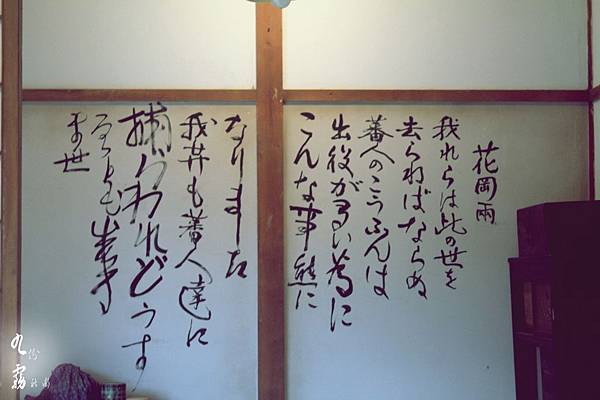 花岡兩
我れらは此の世を
去らねばならぬ
蕃人のこうふんは
出役が多い為に
こんな事態に
なりました
我等も蕃人達に
捕らわれどうす
ることも出来
ま世
九份
霧